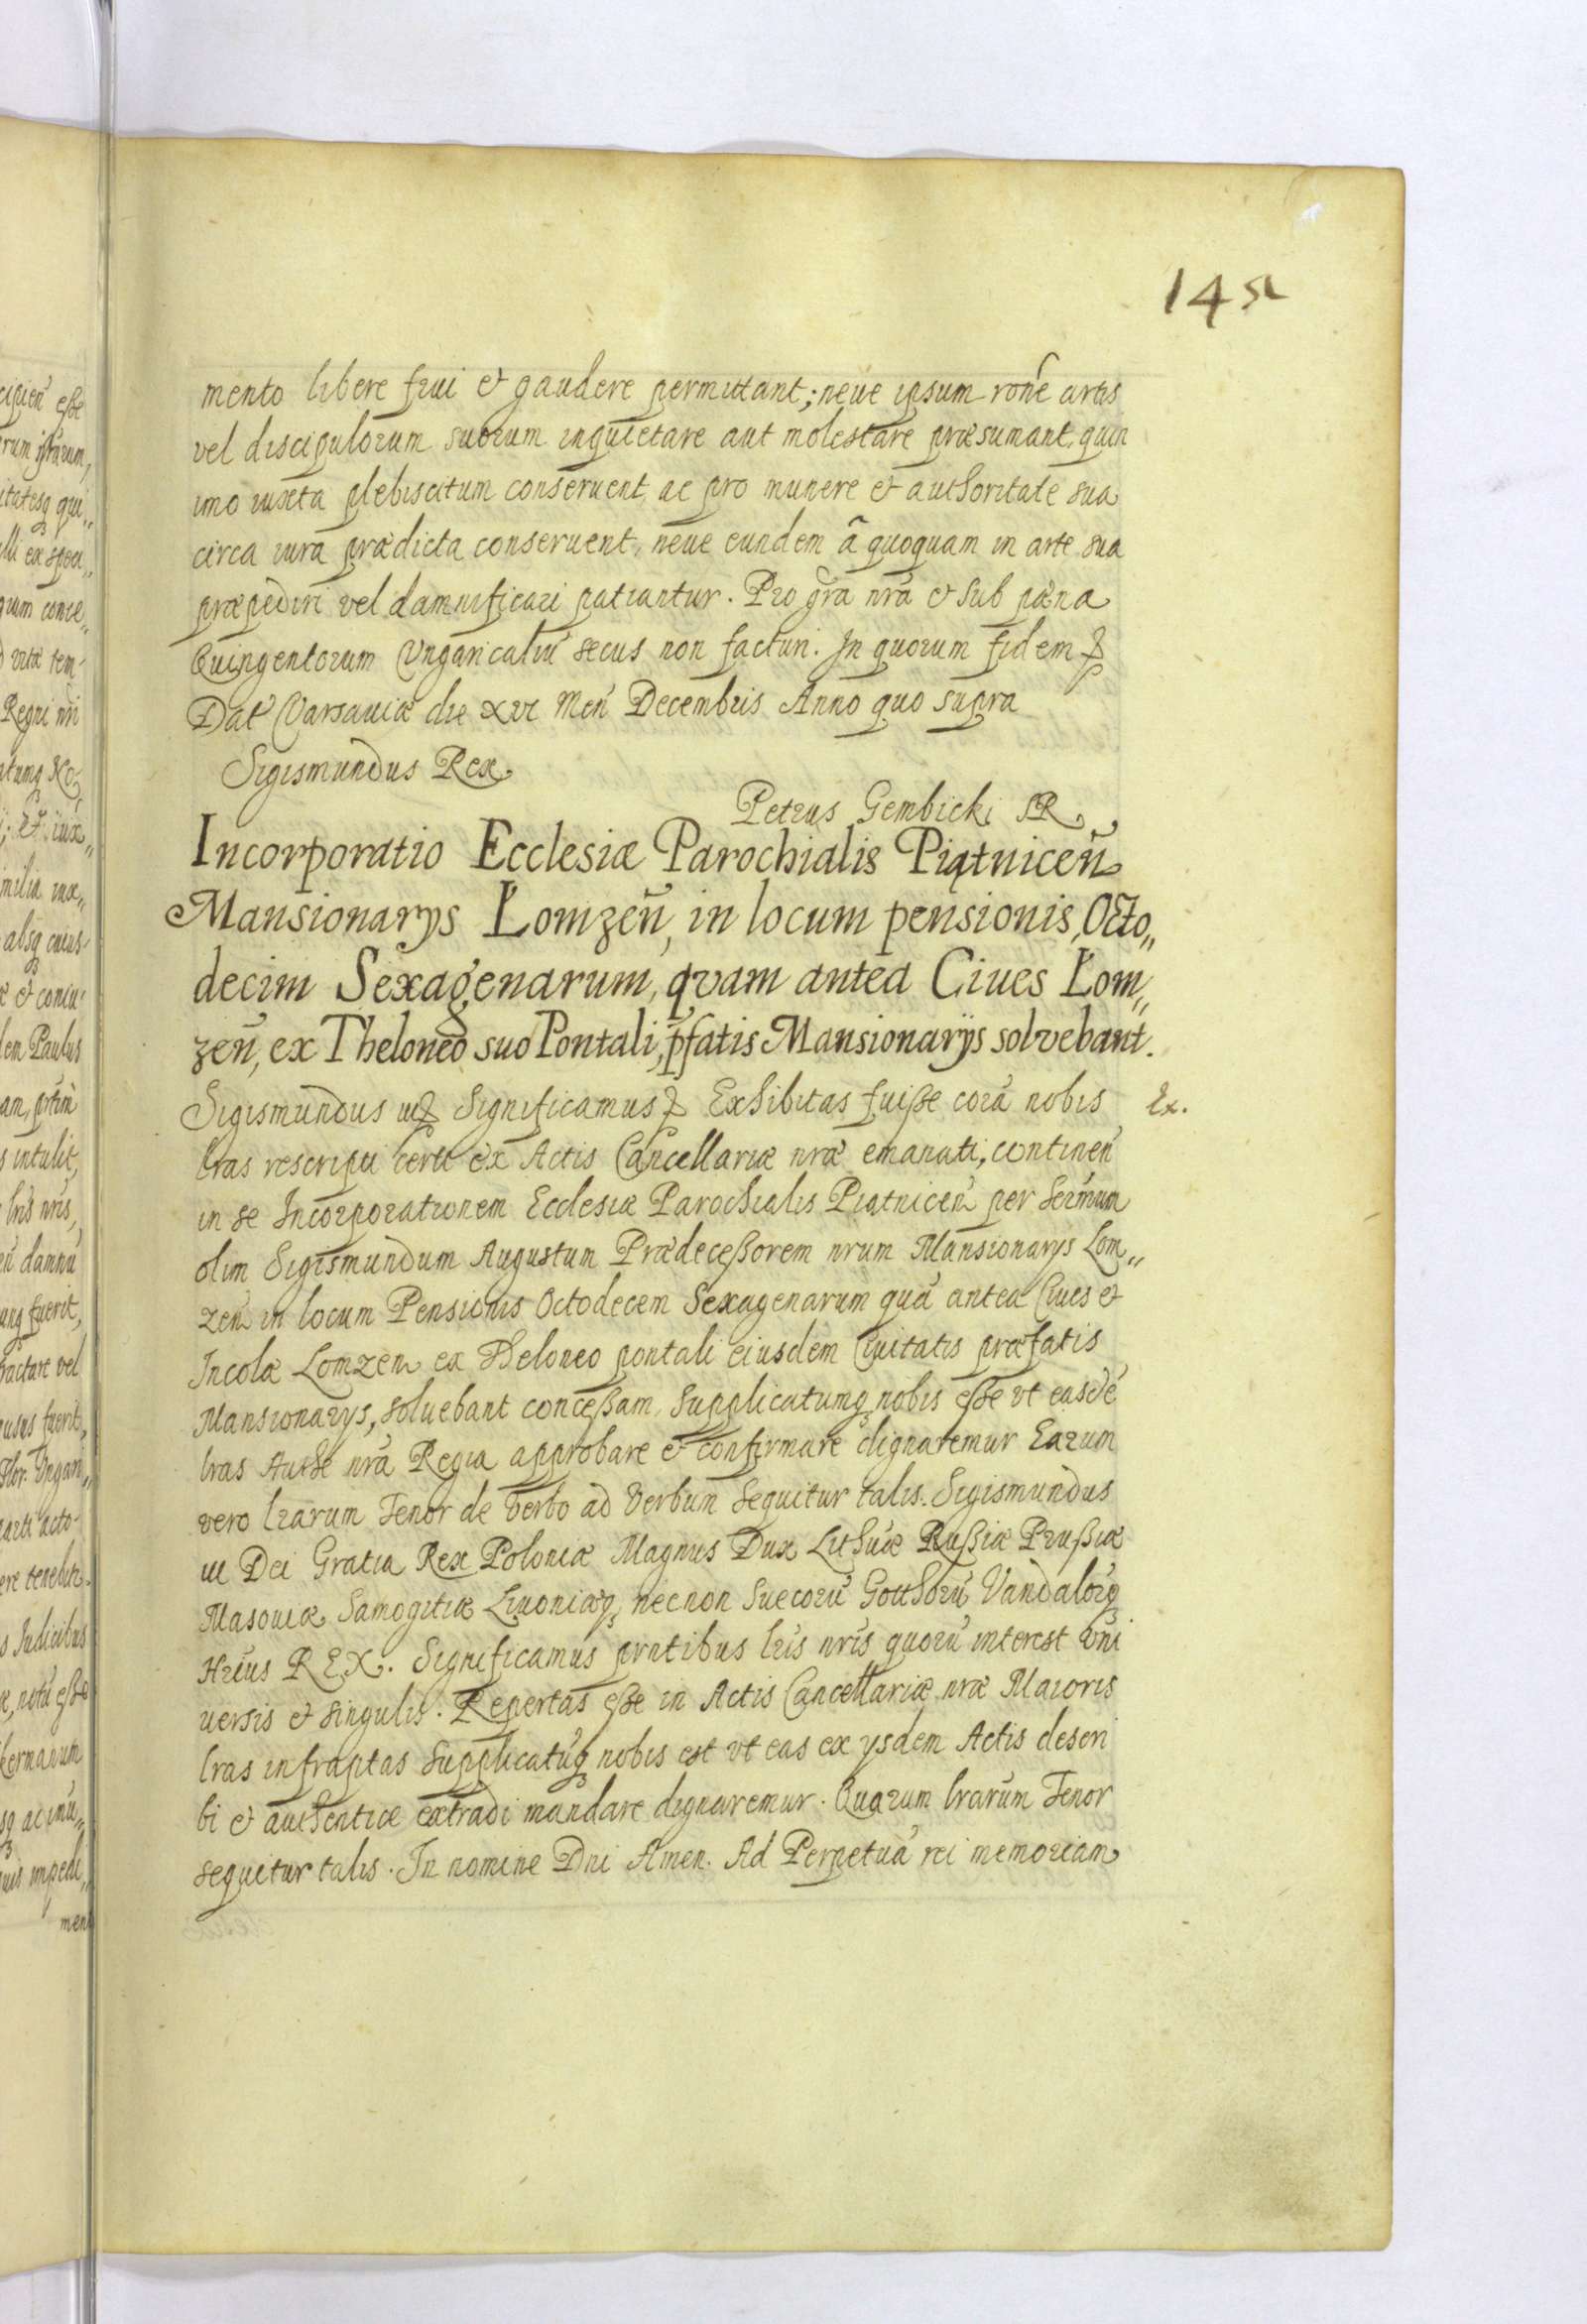 145
mento libere frui et gaudere permittant; neue ipsum rone artis
vel discipulorum suorum inquietare aut molestare præsumant, quin
imo iuxta plebiscitum conseruent, ac pro munere et authoritate sua
circa iura prædicta conseruent, neue eundem â quoquam in arte sua
præpediri vel damnificari patiantur. Pro gra nra et sub pæna
Quingentorum Vngaricaliu secus non facturi. In quorum fidem
Dat Varsauiæ die xvi Men Decembris Anno quo supra
Sigismundus Rex
Petrus Gembicki SR
Incorporatio Ecclesiæ Parochialis Piątniceñ
Mansionarys Łomzeñ, in locum pensionis, Octo,,
decim Sexagenarum, qvam antea Ciues Łom,,
zeñ, ex Theloneo suo Pontali, p̃fatis Mansionarijs solvebant.
Sigismundus Significamus Exhibitas fuiße corã nobis
Ex.
lras rescripti certi ex Actis Cancellariæ nræ emanati, continen
in se Incorporationem Ecclesiæ Parochialis Piątnicen per Sermum
olim Sigismundum Augustum Prædeceßorem nrum Mansionarys Lom,,
zen in locum Pensionis Octodecem Sexagenarum quã antea Ciues et
Incolæ Lomzen ex Theloneo pontali eiusdem Ciuitatis præfatis
Mansionarys, soluebant conceßam, Supplicatumq nobis eße vt easdẽ
lras Authe nra Regia approbare et confirmare dignaremur Earum
vero lrarum Tenor de verbo ad Verbum sequitur talis. Sigismundus
iii Dei Gratia Rex Poloniæ Magnus Dux Lithuæ Rußiæ Prußiæ
Masouiæ Samogitiæ Liuoniæq necnon Suecorũ Gotthorũ Vandalorq
Hrius REX. Significamus prntibus lris nris quorũ interest vni
uersis et singulis. Repertas eße in Actis Cancellariæ nræ Maioris
lras infraptas Supplicatũq nobis est vt eas ex ysdem Actis descri
bi et authentice extradi mandare dignaremur. Quarum lrarum Tenor
sequitur talis. In nomine Dni Amen. Ad Perpetuã rei memoriam